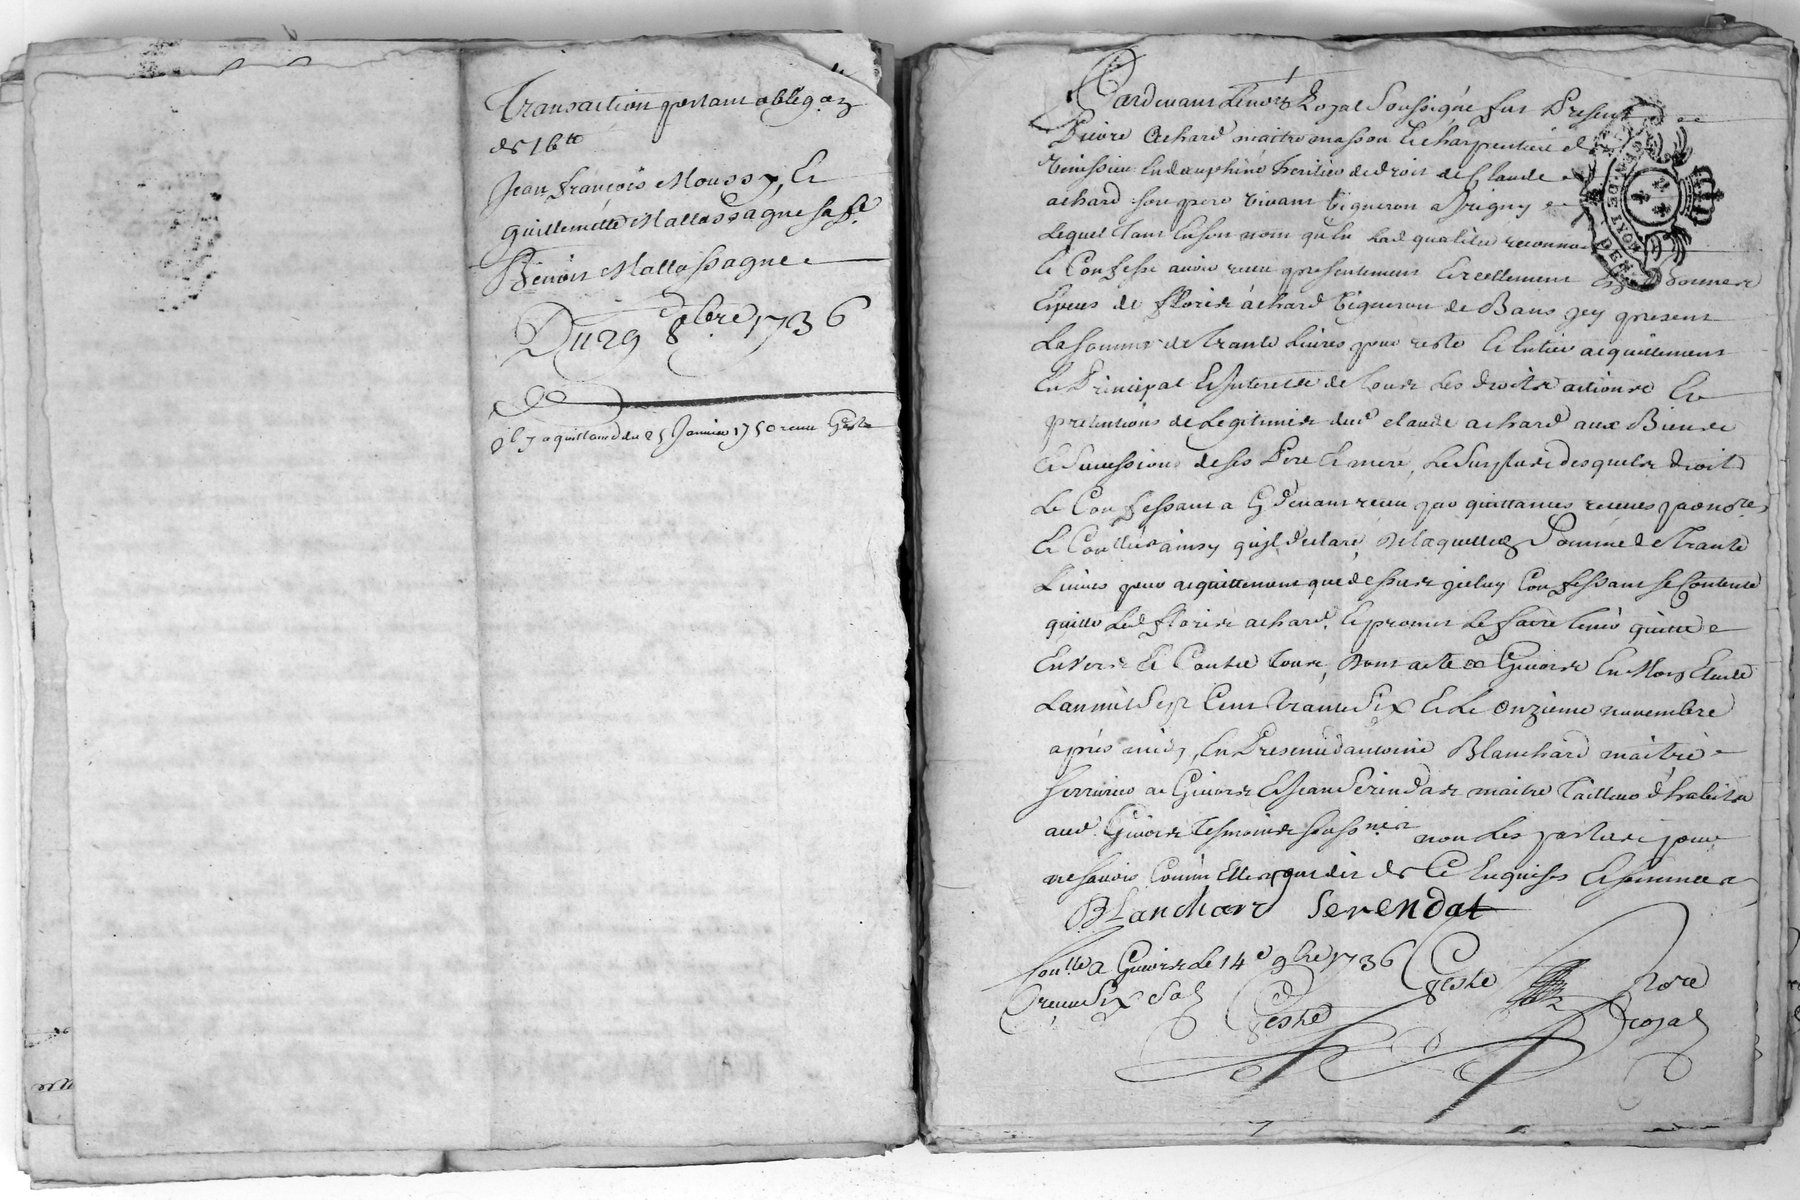 Transaction portant obligaon
de 16tt
Jean françois Moussy, Et
guillemette Mallassagne sa fe
Benoit Mallassagne
Du 29 8bre 1736
il y a quittance du 25 Janvier 1750 receu Geste
Pardevant Le no.re Royal Soussigné fut Present
Pierre Achard maitre masson Et charpentier de
Venissieu En dauphiné heritier de droit de Claude
achard son pere vivant vigneron a Irigny
Lequel tant En son nom qu'En lad qualité reconnoit
Et Confesse avoir receu presentement Et reellement
de fleurie achard vigneron de present
La somme de Trante Livres pour reste Et Entier acquittement
En Principal Et Interests de tous Les droits actions Et
pretentions de Legitimes dud Claude achard aux Biens
Et Successions de ses Pere Et mere, Le Surplus desquels droits
Le Confessant a Cy devant receu par quittances receues par no.res
Et Con.lles ainsy qu'il declare, De laquelle Somme de Trante
Livres pour acquittement que dessus iceluy Confessant se Contente
quitte Led achard, Et promet Le faire tenir quitte
Envers Et Contre tous, Dont acte a Givors En Mon Etude
L'an mil Sept Cent trante Six Et Le onzieme novembre
après midy, En Presence d'antoine Blanchard maitre
serrurier a Givors Et Jean Serendat maitre Tailleur d'habits
aud Givors tesmoins soussnés non Les parties pour
ne scavoir Comm' Elles ont dit de Ce Enquises Et sommees
BLanchard Serendat
Con.lle a Givors Le 14e 9bre 1736 Geste No.re
receu Six Sols Geste Royal
GEN. DE LYON